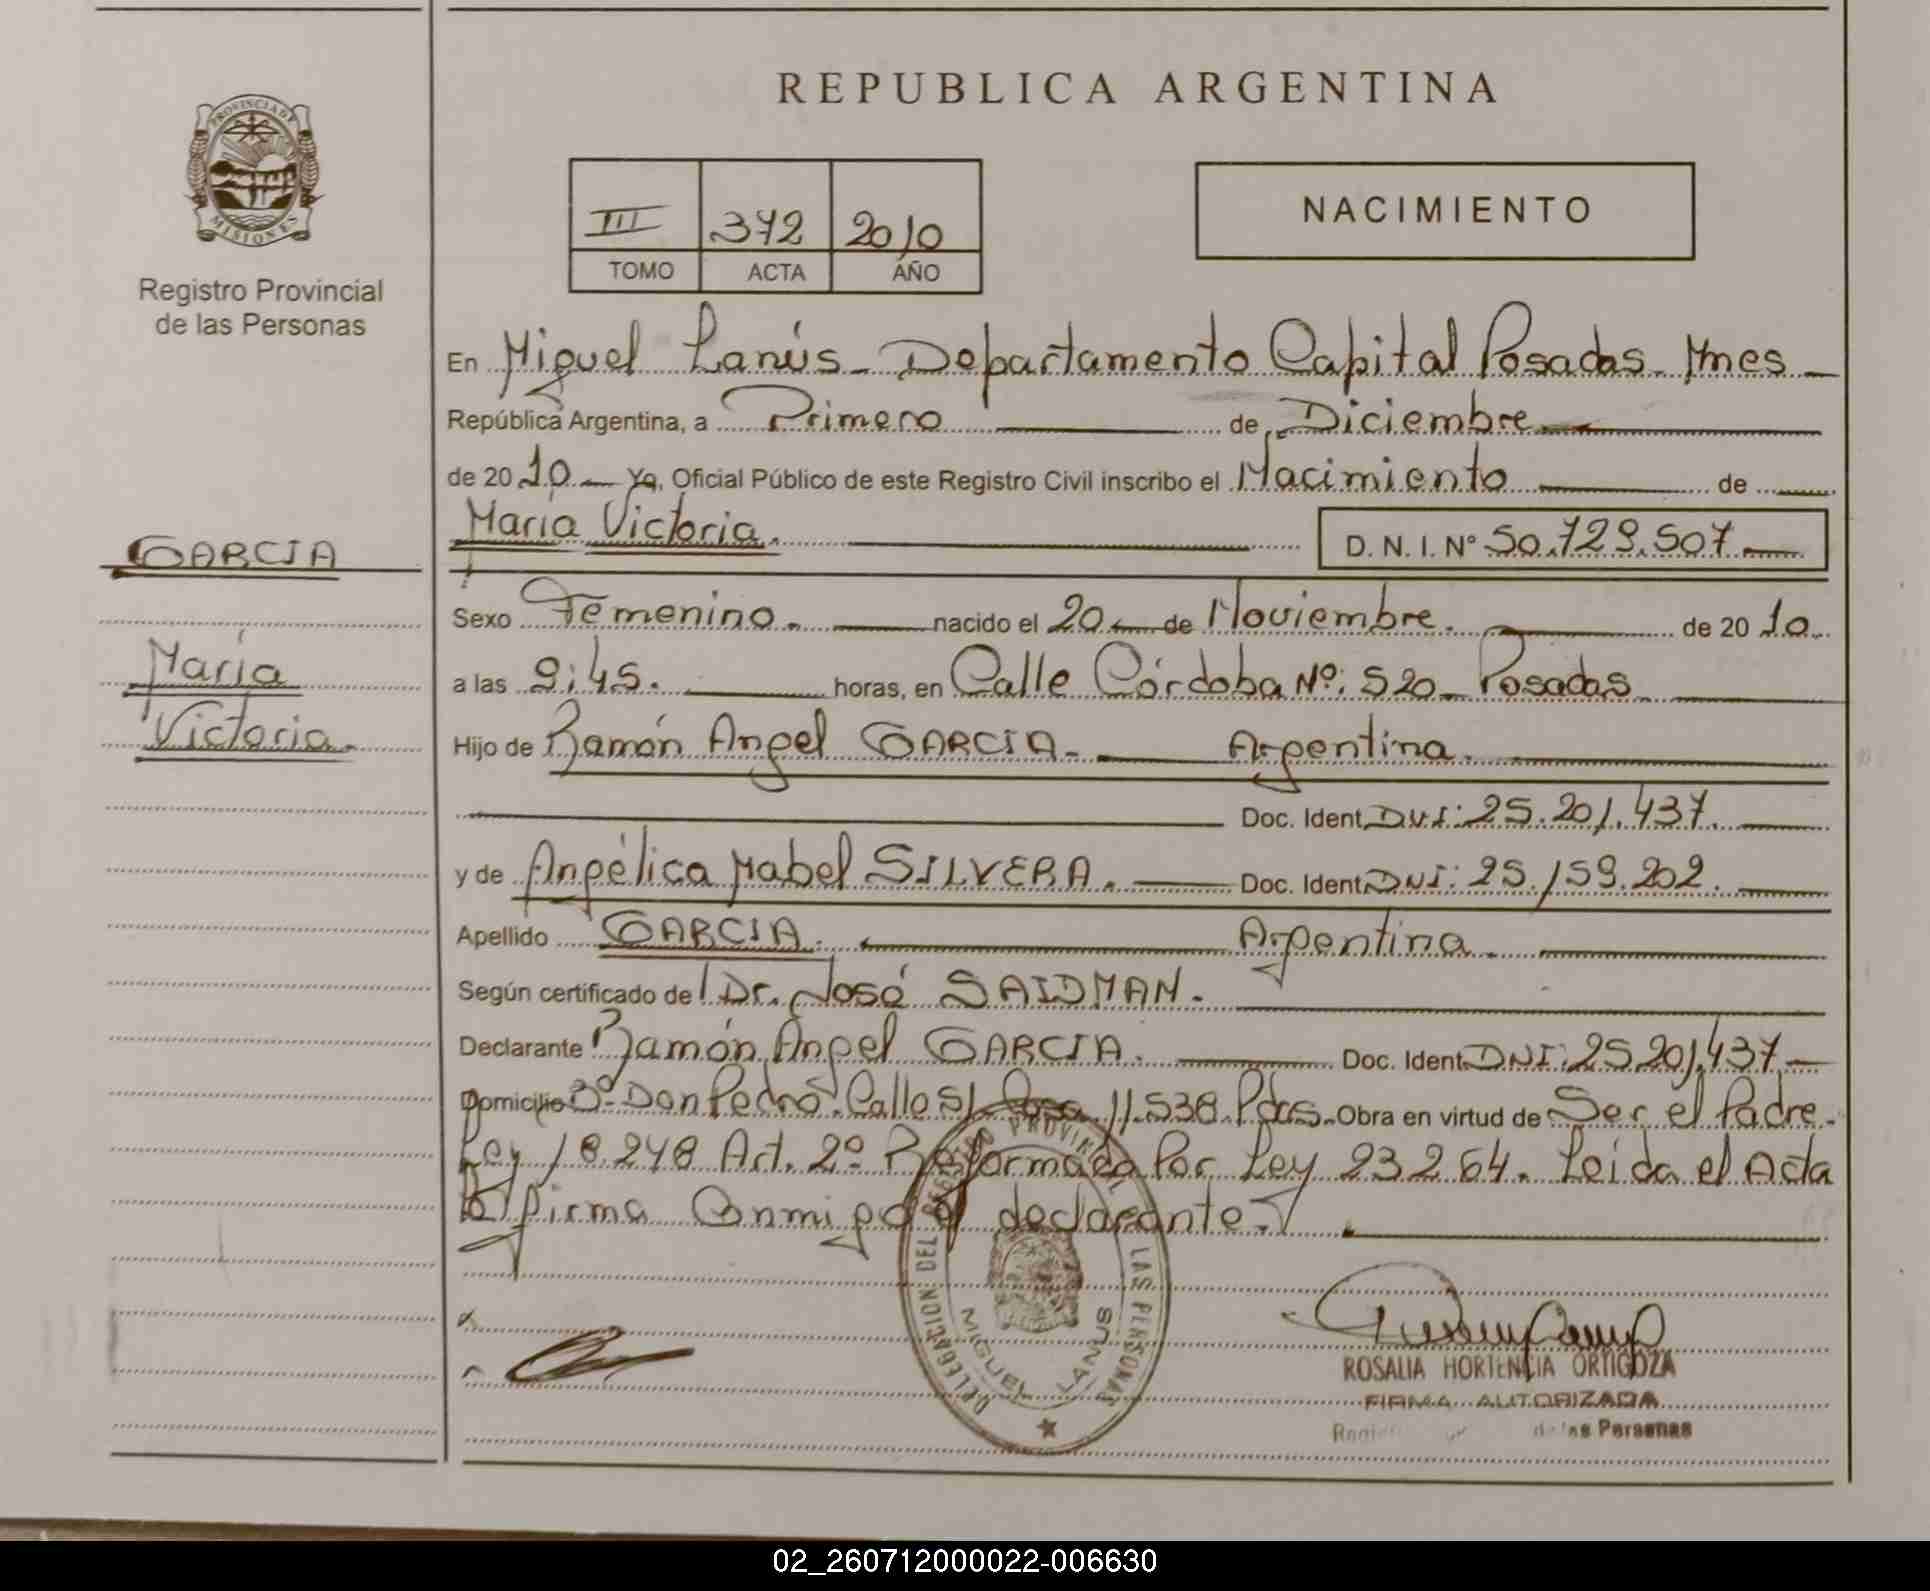 REPUBLICA ARGENTINA
PROVINCIA DE MISIONES
Registro Provincial
de las Personas
III 372 2010
TOMO ACTA AÑO
NACIMIENTO
En Miguel Lanús - Departamento Capital Posadas - Mnes -
República Argentina, a Primero de Diciembre
de 2010 Yo, Oficial Público de este Registro Civil inscribo el Nacimiento de
María Victoria. D. N. I. Nº 50.729.507
GARCIA
María
Victoria.
Sexo Femenino. nacido el 20 de Noviembre. de 2010
a las 9:45. horas, en Calle Córdoba Nº: 520 - Posadas
Hijo de Ramón Angel GARCIA - Argentina.
Doc. Ident. DNI: 25.201.437.
y de Angélica Mabel SILVERA. Doc. Ident. DNI: 25.159.202.
Apellido GARCIA. Argentina.
Según certificado de Dr. José SAIDMAN.
Declarante Ramón Angel GARCIA. Doc. Ident. DNI: 25.201.437
Domicilio Bº Don Pedro. Calle 51 Casa 11.538 Pdas. Obra en virtud de Ser el Padre.
Ley 18.248 Art. 2º Reformada Por Ley 23.264. Leida el Acta
firma Conmigo el declarante.
DELEGACION DEL REGISTRO PROVINCIAL LAS PERSONAS
MIGUEL LANUS
ROSALIA HORTENCIA ORTIGOZA
FIRMA AUTORIZADA
de las Personas
02_260712000022-006630